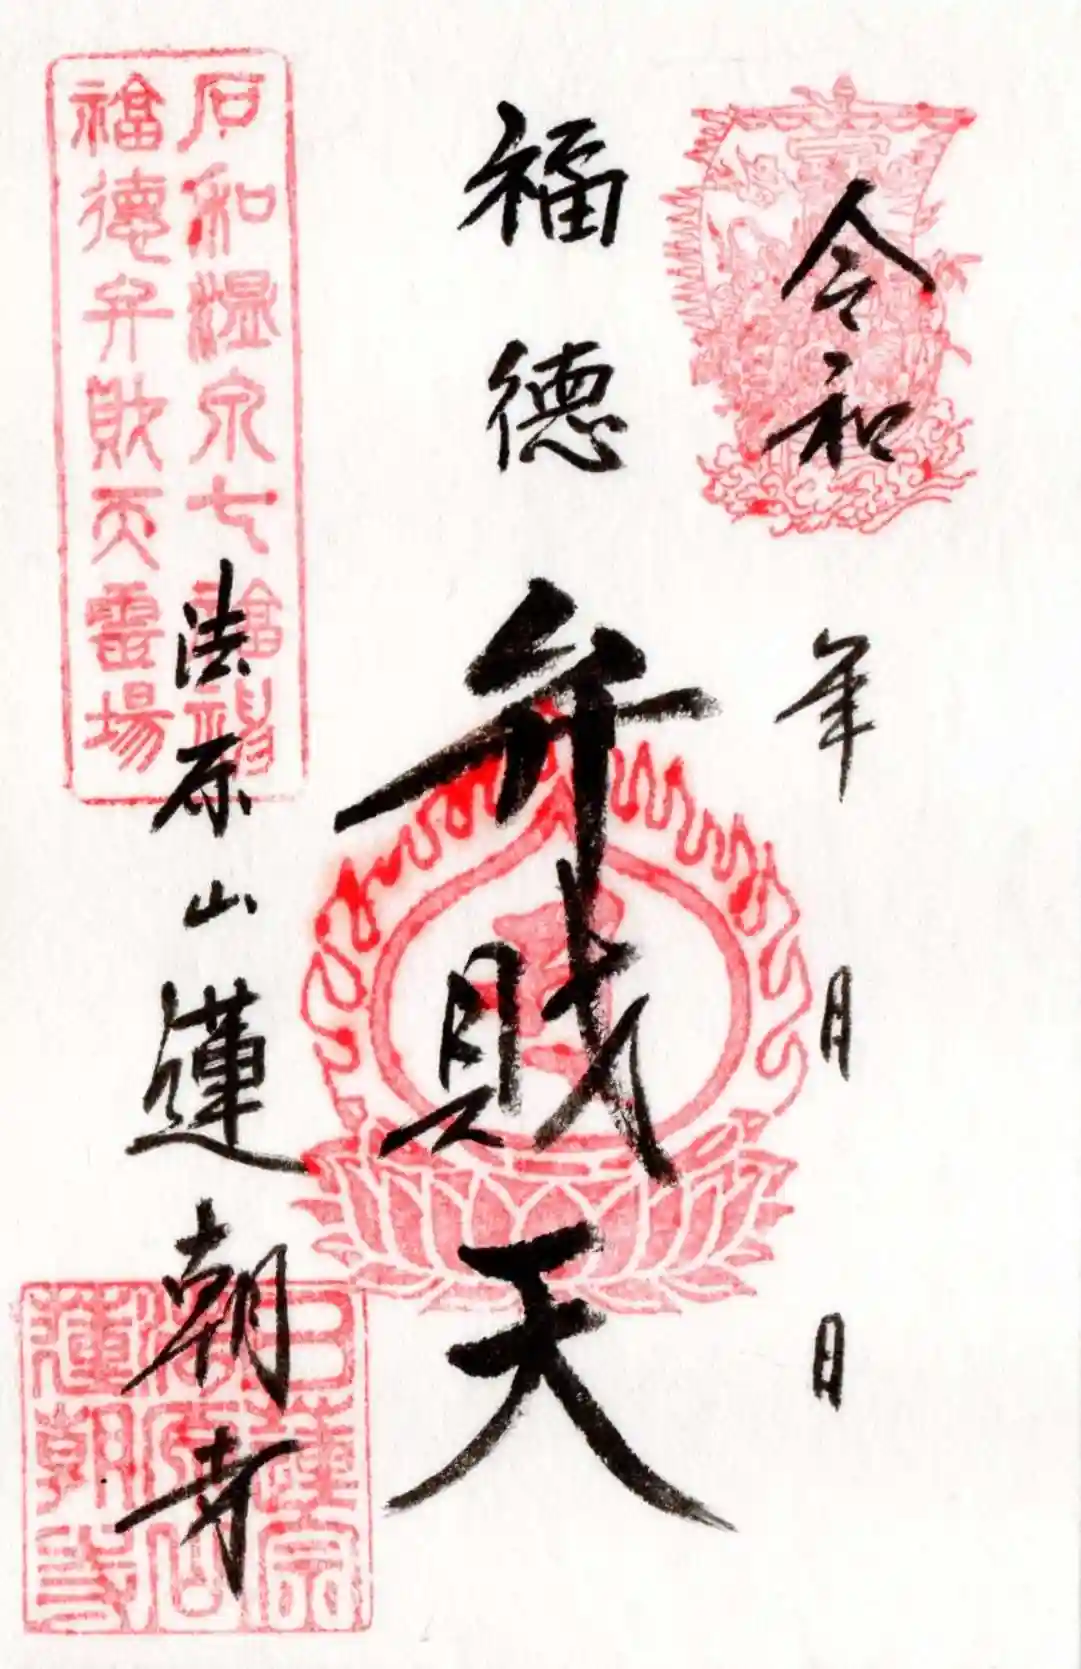 令和 年 月 日
福徳
弁財天
法原山 蓮朝寺
石和温泉七福神
福徳弁財天霊場
日蓮宗
法原山
蓮朝寺